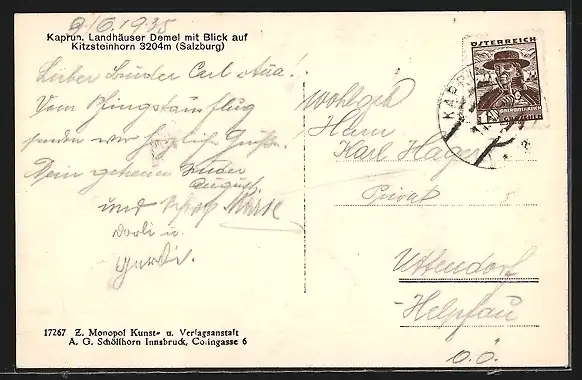 9/6.1935
Kaprun. Landhäuser Demel mit Blick auf
Kitzsteinhorn 3204m (Salzburg)
Lieber Bruder Carl
Vom Pfingstausflug
senden wir herzliche Grüße.
Dein getreuer Bruder
August.
und
Gerti.
17267 Z. Monopol Kunst- u. Verlagsanstalt
A. G. Schöllhorn Innsbruck, Colingasse 6
ÖSTERREICH
KAPRUN
Wohlgeb
Herrn
Karl Hager
Privat
Uttendorf
Helpfau
O.Ö.